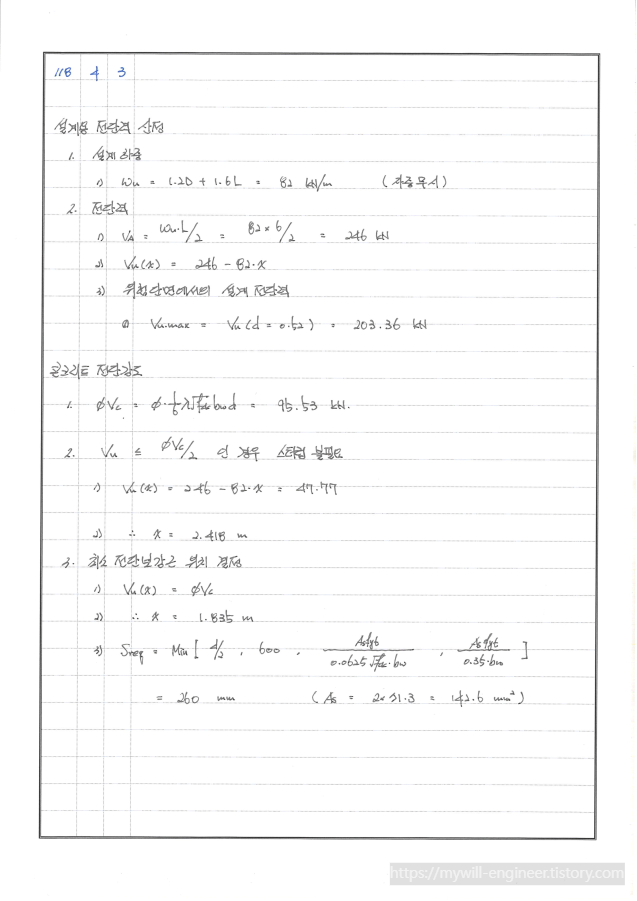 118 4 3
설계용 전단력 산정
1. 설계하중
1) Wu = 1.2D + 1.6L = 82 kN/m (자중무시)
2. 전단력
1) VA = Wu·L/2 = 82×6/2 = 246 kN
2) Vu(x) = 246 - 82·x
3) 위험단면에서의 설계 전단력
① Vu.max = Vu(d = 0.52) = 203.36 kN
콘크리트 전단강도
1. φVc = φ·1/6 λ√fck bw d = 95.53 kN.
2. Vu ≤ φVc/2 인 경우 스터럽 불필요
1) Vu(x) = 246 - 82·x = 47.77
2) ∴ x = 2.418 m
3. 최소 전단보강근 위치 결정
1) Vu(x) = φVc
2) ∴ x = 1.835 m
3) Sreq = Min [ d/2 , 600 , As fyt / 0.0625√fck·bw , As fyt / 0.35·bw ]
= 260 mm (As = 2×71.3 = 142.6 mm²)
https://mywill-engineer.tistory.com